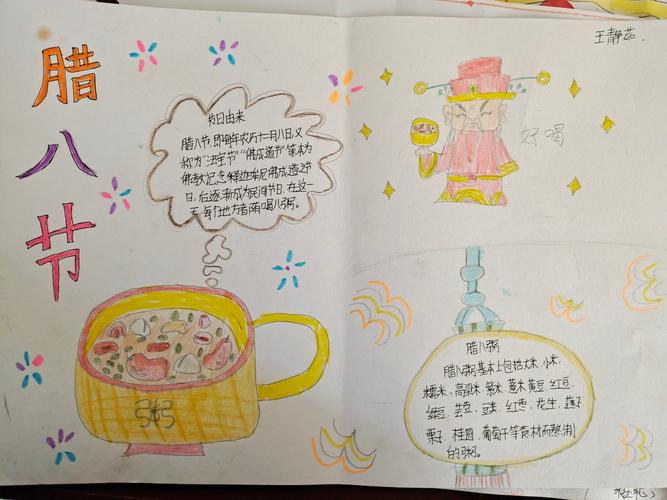 王静茹
腊
八
节
节日由来
腊八节,即每年农历十二月八日,又
称为“法宝节”“佛成道节”等本为
佛教纪念释迦牟尼佛成道之节
日,后逐渐成为民间节日,在这一
天每个地方者有喝八粥。
好喝
粥
腊八粥
腊八粥基本上包括大米、小米、
糯米、高梁米、紫米、薏米、黄豆、红豆、
绿豆、芸豆、豇豆、红枣、花生、莲子、
栗子、桂圆、葡萄干等食材而熬制
的粥。